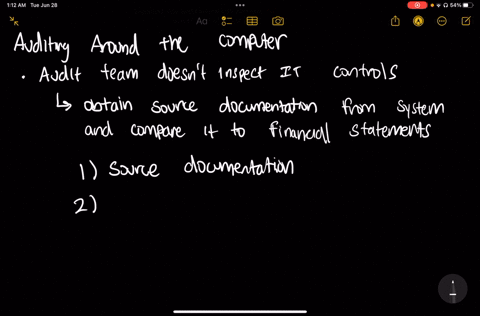 1:12 AM Tue Jun 28
54%
Aa
Auditing Around the computer
• Audit team doesn't inspect IT controls
↳ obtain source documentation from system
and compare it to financial statements
1) Source documentation
2)